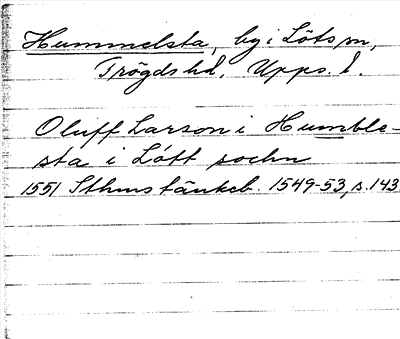 Hummelsta, by i Löts sn,
Trögds hd, Upps. l.
Oluff Larson i Humble-
sta i Lött sochn
1551 Sthms tänkeb. 1549-53, s. 143